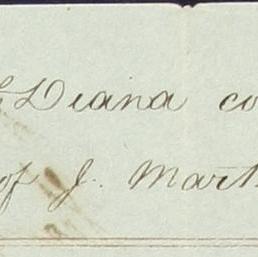 Diana co
of J. Mart